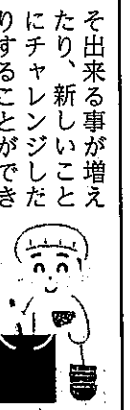 そ出来る事が増え
たり、新しいこと
にチャレンジした
りすることができ